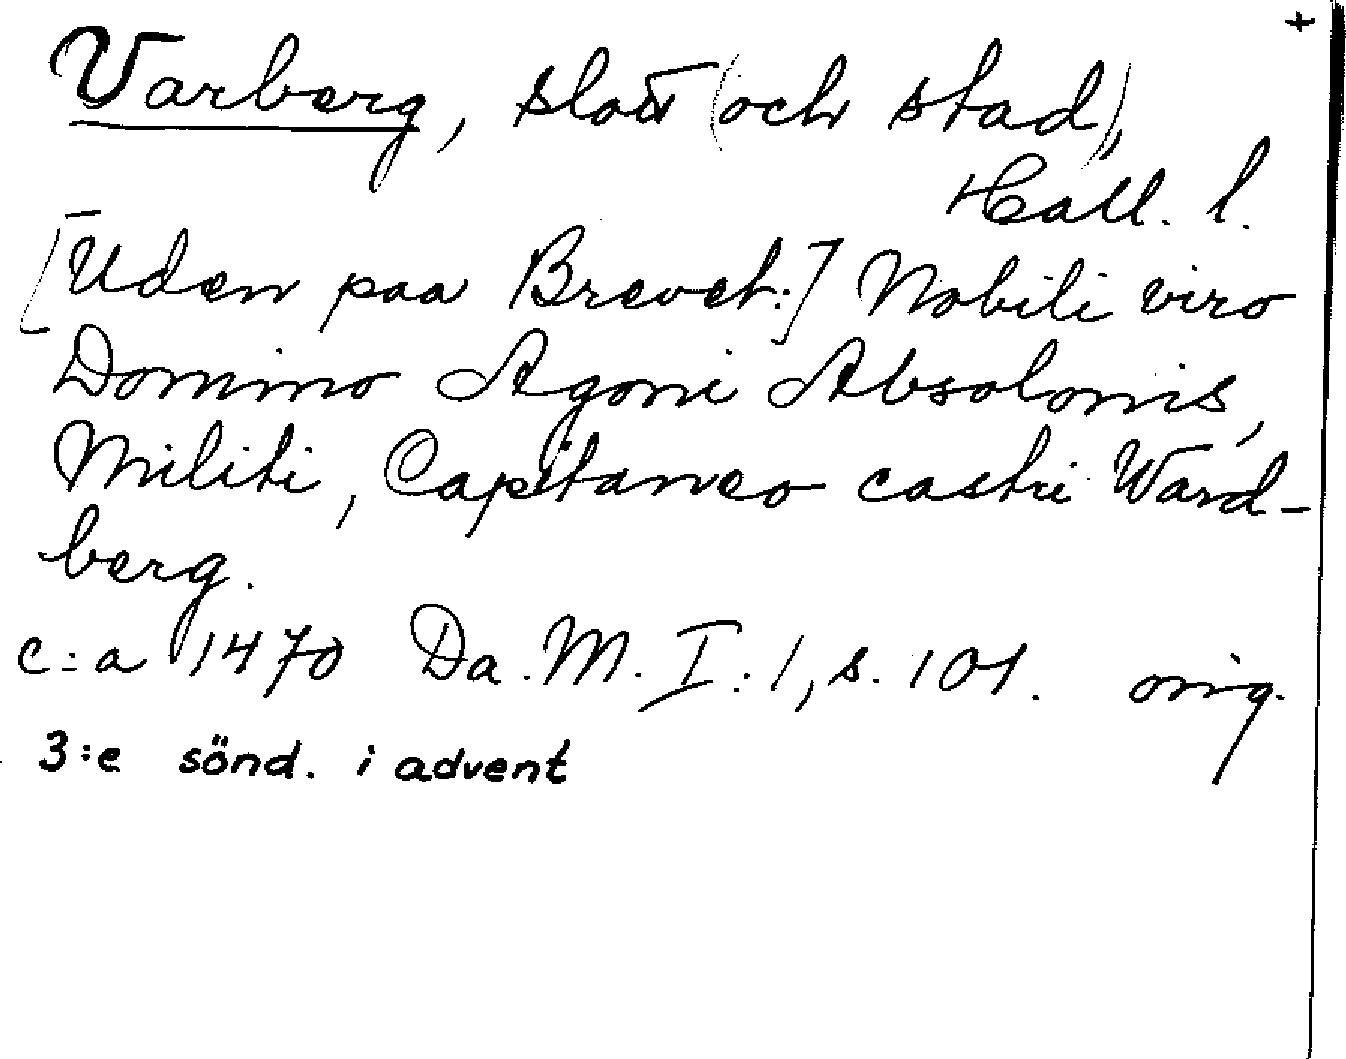 +
Varberg, slott (och stad),
Hall. l.
[Uden paa Brevet:] Nobili viro
Domino Agoni Absolonis,
Militi, Capitaneo castri Ward-
berg.
c:a 1470 Da. M. I:1, s. 101. orig.
3:e sönd. i advent